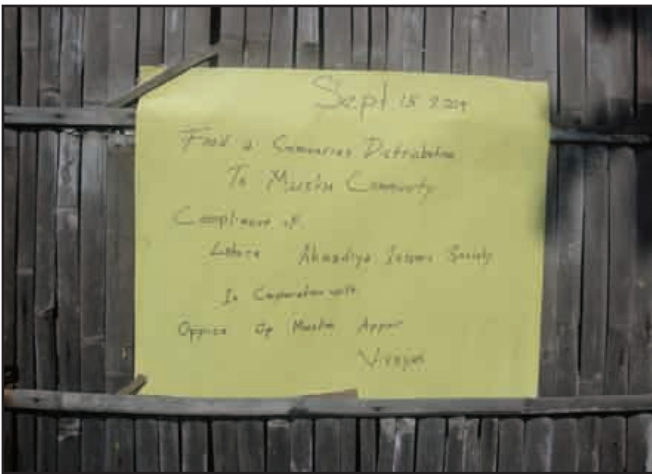 Sept 15 2009
Food & Groceries Distribution
To Muslim Community
Compliment of
Lahore Ahmadiya Islamic Society
In Cooperation with
Office Of Muslim Affair
Visayas